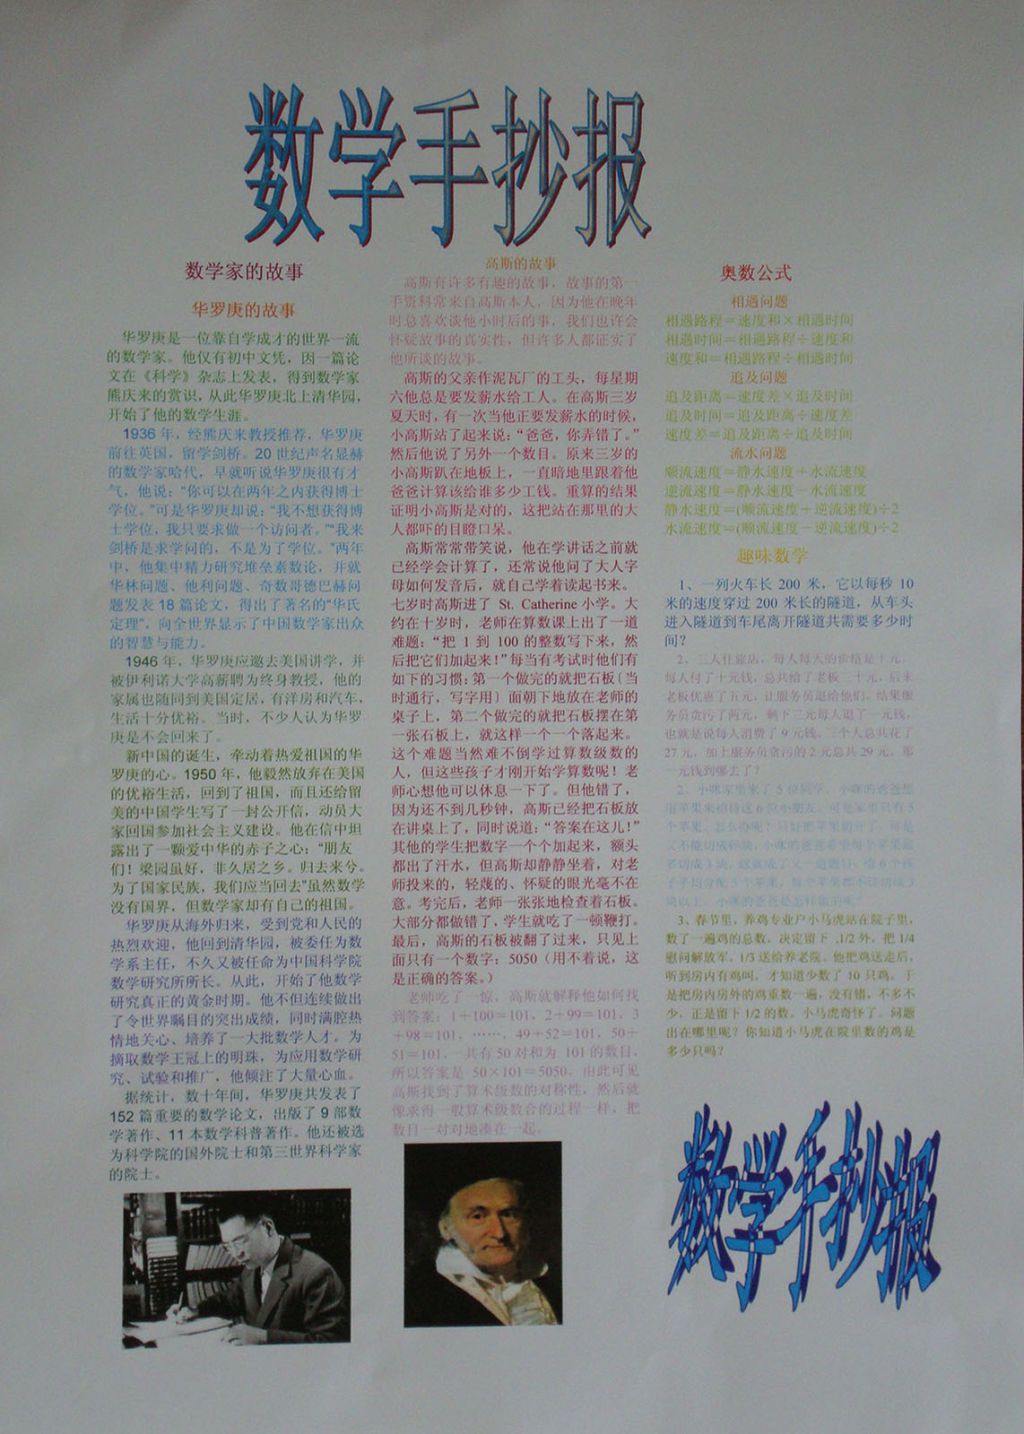 数学手抄报
数学家的故事
华罗庚的故事
华罗庚是一位靠自学成才的世界一流
的数学家。他仅有初中文凭，因一篇论
文在《科学》杂志上发表，得到数学家
熊庆来的赏识，从此华罗庚北上清华园，
开始了他的数学生涯。
1936 年，经熊庆来教授推荐，华罗庚
前往英国，留学剑桥。20 世纪声名显赫
的数学家哈代，早就听说华罗庚很有才
气，他说：“你可以在两年之内获得博士
学位。”可是华罗庚却说：“我不想获得博
士学位，我只要求做一个访问者。”“我来
剑桥是求学问的，不是为了学位。”两年
中，他集中精力研究堆垒素数论，并就
华林问题、他利问题、奇数哥德巴赫问
题发表 18 篇论文，得出了著名的“华氏
定理”，向全世界显示了中国数学家出众
的智慧与能力。
1946 年，华罗庚应邀去美国讲学，并
被伊利诺大学高薪聘为终身教授，他的
家属也随同到美国定居，有洋房和汽车，
生活十分优裕。当时，不少人认为华罗
庚是不会回来了。
新中国的诞生，牵动着热爱祖国的华
罗庚的心。1950 年，他毅然放弃在美国
的优裕生活，回到了祖国，而且还给留
美的中国学生写了一封公开信，动员大
家回国参加社会主义建设。他在信中坦
露出了一颗爱中华的赤子之心：“朋友
们！梁园虽好，非久居之乡。归去来兮。
为了国家民族，我们应当回去”虽然数学
没有国界，但数学家却有自己的祖国。
华罗庚从海外归来，受到党和人民的
热烈欢迎，他回到清华园，被委任为数
学系主任，不久又被任命为中国科学院
数学研究所所长。从此，开始了他数学
研究真正的黄金时期。他不但连续做出
了令世界瞩目的突出成绩，同时满腔热
情地关心、培养了一大批数学人才。为
摘取数学王冠上的明珠，为应用数学研
究、试验和推广，他倾注了大量心血。
据统计，数十年间，华罗庚共发表了
152 篇重要的数学论文，出版了 9 部数
学著作、11 本数学科普著作。他还被选
为科学院的国外院士和第三世界科学家
的院士。
高斯的故事
高斯有许多有趣的故事，故事的第一
手资料常来自高斯本人，因为他在晚年
时总喜欢谈他小时后的事，我们也许会
怀疑故事的真实性，但许多人都证实了
他所谈的故事。
高斯的父亲作泥瓦厂的工头，每星期
六他总是要发薪水给工人。在高斯三岁
夏天时，有一次当他正要发薪水的时候，
小高斯站了起来说：“爸爸，你弄错了。”
然后他说了另外一个数目。原来三岁的
小高斯趴在地板上，一直暗地里跟着他
爸爸计算该给谁多少工钱。重算的结果
证明小高斯是对的，这把站在那里的大
人都吓的目瞪口呆。
高斯常常带笑说，他在学讲话之前就
已经学会计算了，还常说他问了大人字
母如何发音后，就自己学着读起书来。
七岁时高斯进了 St. Catherine 小学。大
约在十岁时，老师在算数课上出了一道
难题：“把 1 到 100 的整数写下来，然
后把它们加起来！”每当有考试时他们有
如下的习惯：第一个做完的就把石板〔当
时通行，写字用〕面朝下地放在老师的
桌子上，第二个做完的就把石板摆在第
一张石板上，就这样一个一个落起来。
这个难题当然难不倒学过算数级数的
人，但这些孩子才刚开始学算数呢！老
师心想他可以休息一下了。但他错了，
因为还不到几秒钟，高斯已经把石板放
在讲桌上了，同时说道：“答案在这儿！”
其他的学生把数字一个个加起来，额头
都出了汗水，但高斯却静静坐着，对老
师投来的，轻蔑的、怀疑的眼光毫不在
意。考完后，老师一张张地检查着石板。
大部分都做错了，学生就吃了一顿鞭打。
最后，高斯的石板被翻了过来，只见上
面只有一个数字：5050（用不着说，这
是正确的答案。）
老师吃了一惊，高斯就解释他如何找
到答案：1＋100＝101，2＋99＝101，3
＋98＝101，……，49＋52＝101，50＋
51＝101，一共有 50 对和为 101 的数目，
所以答案是 50×101＝5050。由此可见
高斯找到了算术级数的对称性，然后就
像求得一般算术级数合的过程一样，把
数目一对对地凑在一起。
奥数公式
相遇问题
相遇路程＝速度和×相遇时间
相遇时间＝相遇路程÷速度和
速度和＝相遇路程÷相遇时间
追及问题
追及距离＝速度差×追及时间
追及时间＝追及距离÷速度差
速度差＝追及距离÷追及时间
流水问题
顺流速度＝静水速度＋水流速度
逆流速度＝静水速度－水流速度
静水速度＝(顺流速度＋逆流速度)÷2
水流速度＝(顺流速度－逆流速度)÷2
趣味数学
1、一列火车长 200 米，它以每秒 10
米的速度穿过 200 米长的隧道，从车头
进入隧道到车尾离开隧道共需要多少时
间？
2、三人住旅店，每人每天的价格是十元，
每人付了十元钱，总共给了老板三十元，后来
老板优惠了五元，让服务员退给他们，结果服
务员贪污了两元，剩下三元每人退了一元钱，
也就是说每人消费了 9 元钱。三个人总共花了
27 元，加上服务员贪污的 2 元总共 29 元。那
一元钱到哪去了？
2、小咪家里来了 5 位同学。小咪的爸爸想
用苹果来招待这 6 位小朋友，可是家里只有 5
个苹果。怎么办呢？只好把苹果切开了，可是
3、春节里，养鸡专业户小马虎站在院子里，
数了一遍鸡的总数，决定留下 .1/2 外，把 1/4
慰问解放军，1/3 送给养老院。他把鸡送走后，
听到房内有鸡叫，才知道少数了 10 只鸡。于
是把房内房外的鸡重数一遍，没有错，不多不
少，正是留下 1/2 的数。小马虎奇怪了。问题
出在哪里呢？你知道小马虎在院里数的鸡是
多少只吗？
数学手抄报